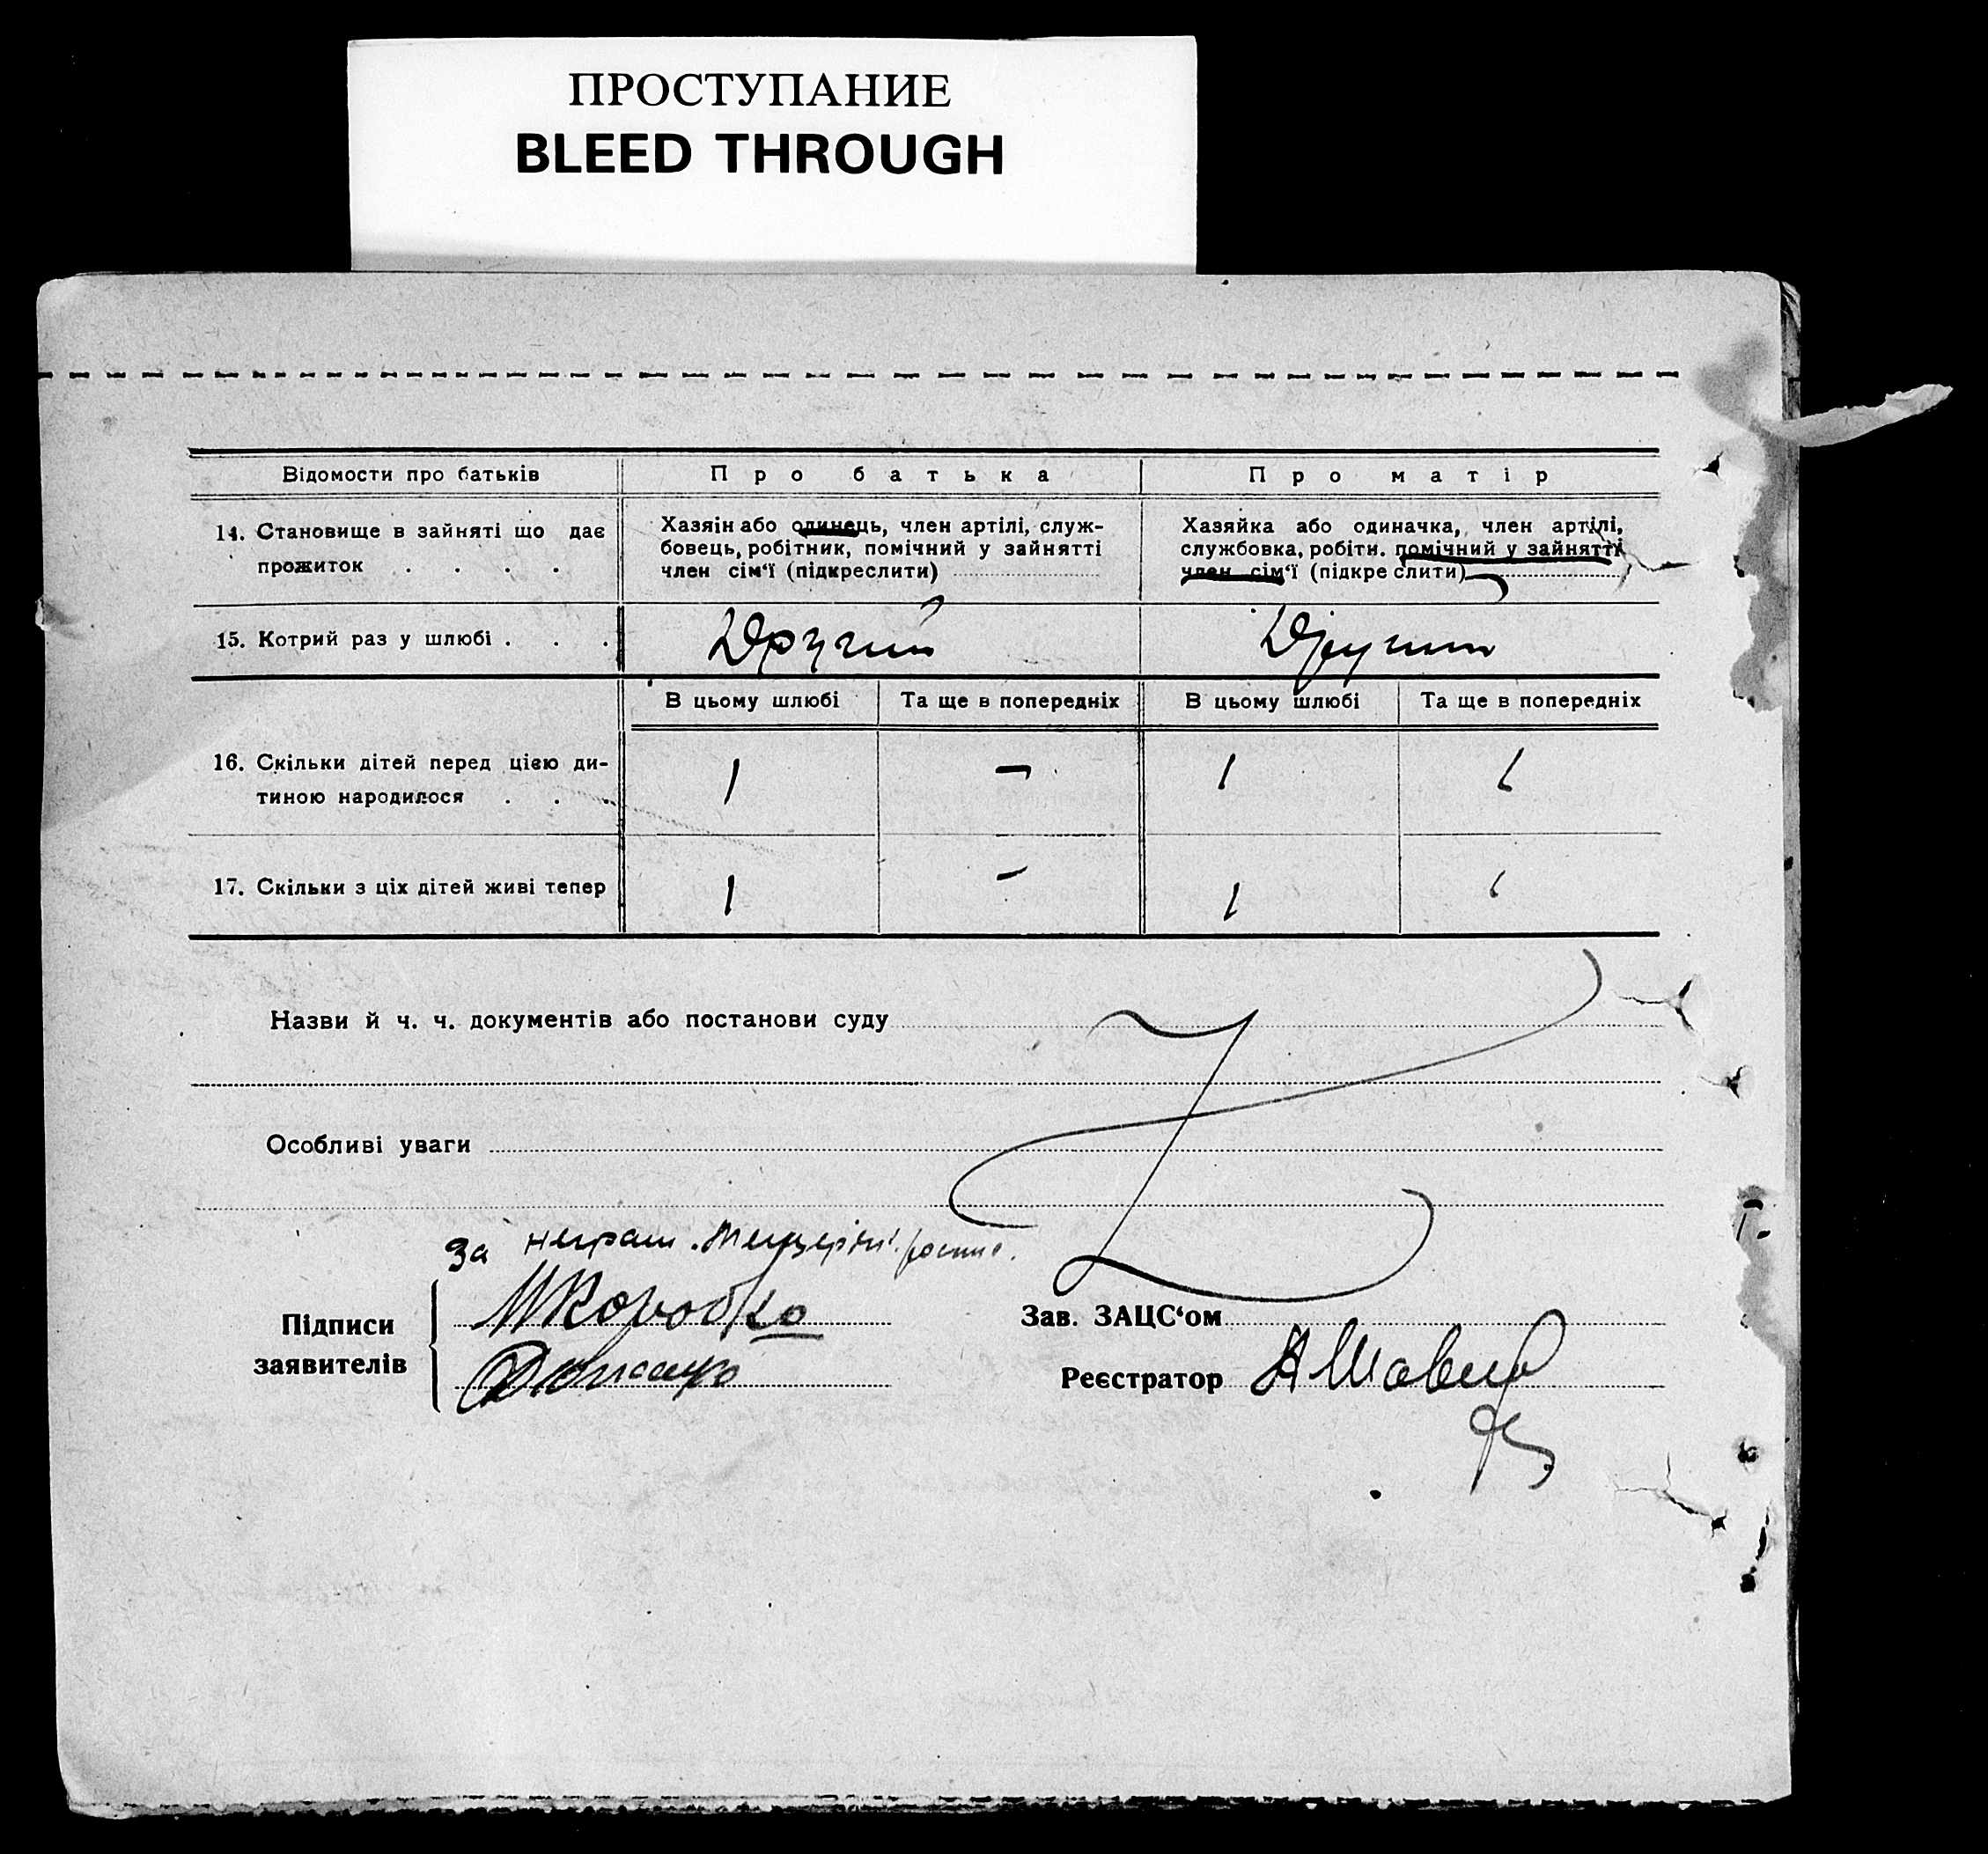 ПРОСТУПАНИЕ
BLEED THROUGH
Відомости про батьків
Про батька
Про матір
14. Становище в зайняті що дає
прожиток . . . .
Хазяїн або одинець, член артілі, служ-
бовець, робітник, помічний у зайнятті
член сім‘ї (підкреслити)
Хазяйка або одиначка, член артілі,
службовка, робітн. помічний у зайнятті
член сім‘ї (підкреслити)
15. Котрий раз у шлюбі . . .
Другий
Другий
В цьому шлюбі
Та ще в попередніх
В цьому шлюбі
Та ще в попередніх
16. Скільки дітей перед цією ди-
тиною народилося . . .
1
–
1
1
17. Скільки з ціх дітей живі тепер
1
–
1
1
Назви й ч. ч. документів або постанови суду
Особливі уваги
За
Підписи
заявителів
МКоробко
Зав. ЗАЦС‘ом
Реєстратор